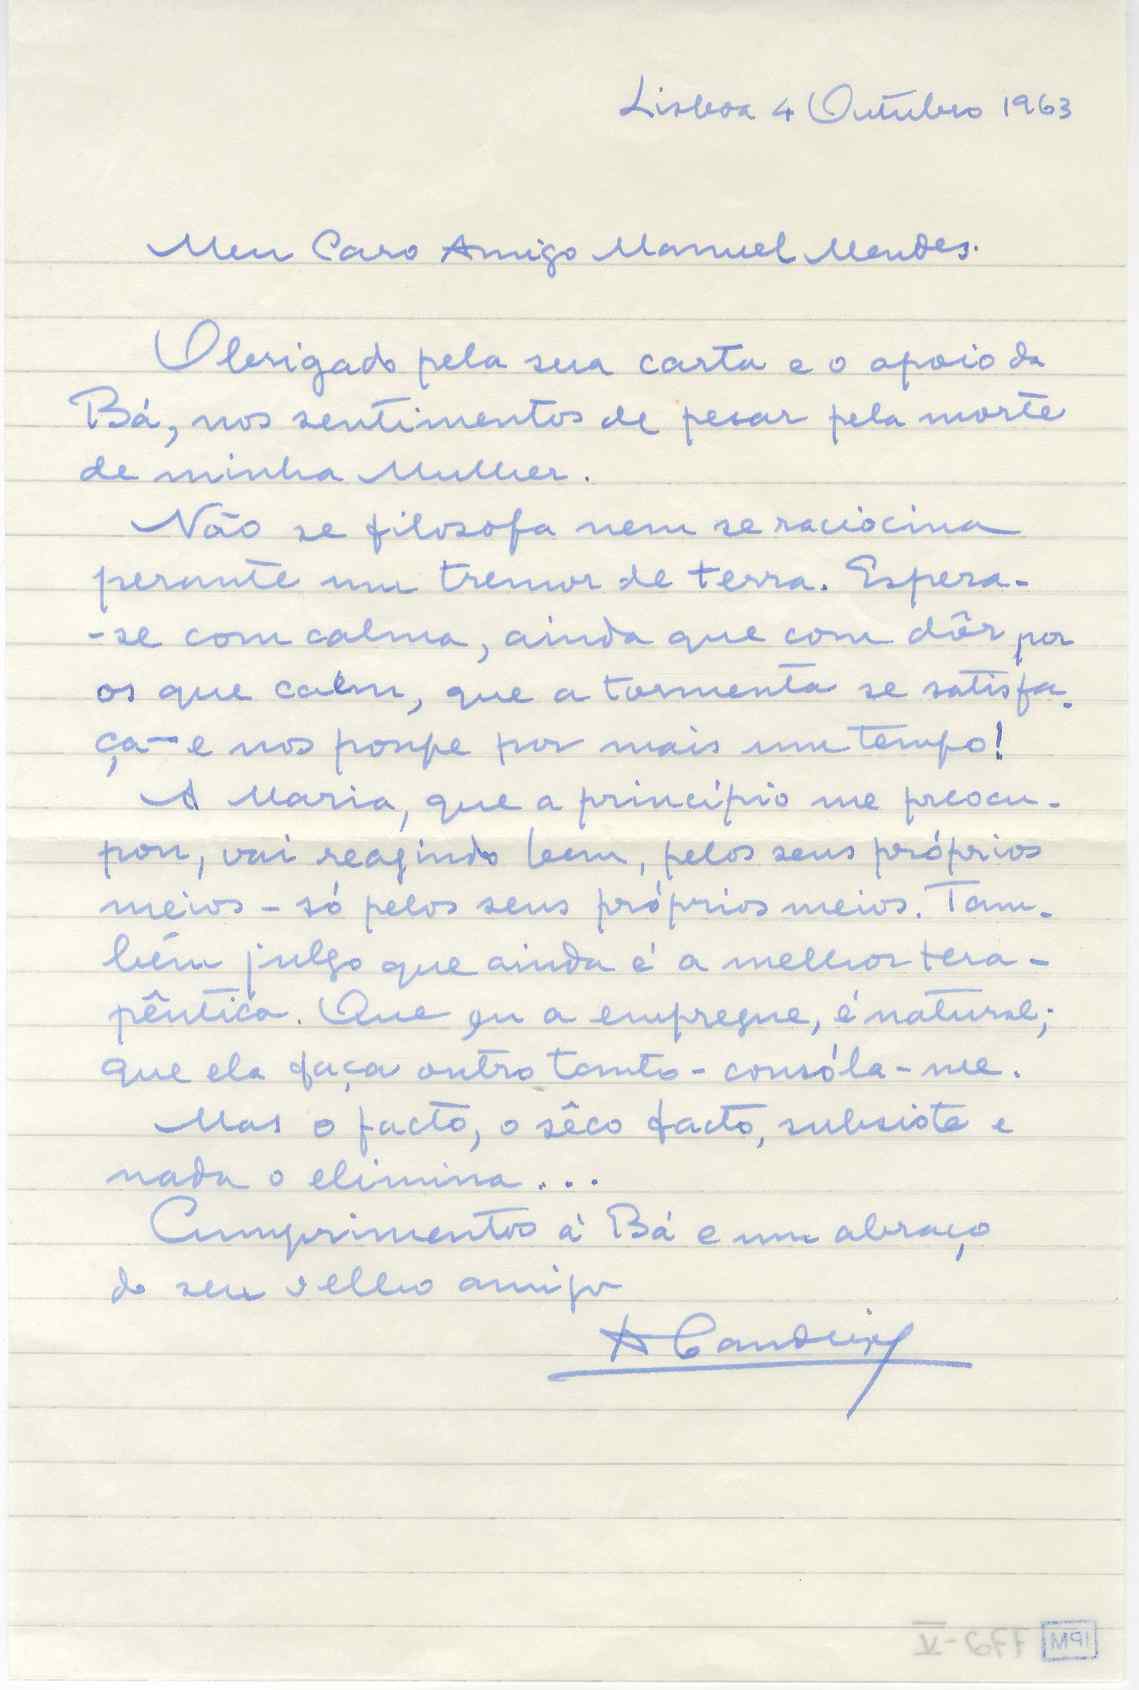 Lisboa 4 Outubro 1963
Meu Caro Amigo Manuel Mendes.
Obrigado pela sua carta e o apoio da
Bá, nos sentimentos de pesar pela morte
de minha Mulher.
Não se filosofa nem se raciocina
perante um tremor de terra. Espera-
-se com calma, ainda que com dôr por
os que caem, que a tormenta se satisfa-
ça – e nos poupe por mais um tempo!
A Maria, que a princípio me preocu-
pou, vai reagindo bem, pelos seus próprios
meios – só pelos seus próprios meios. Tam-
bém julgo que ainda é a melhor tera-
pêutica. Que eu a empregue, é natural;
que ela faça outro tanto – consóla-me.
Mas o facto, o sêco facto, subsiste e
nada o elimina...
Cumprimentos à Bá e um abraço
do seu velho amigo
A